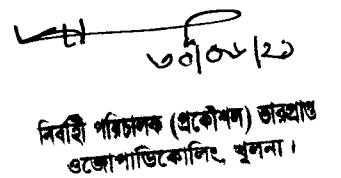 ৩০/০৮/২১
নির্বাহী পরিচালক (প্রকৌশল) ভারপ্রাপ্ত
ওজোপাডিকোলিঃ, খুলনা।